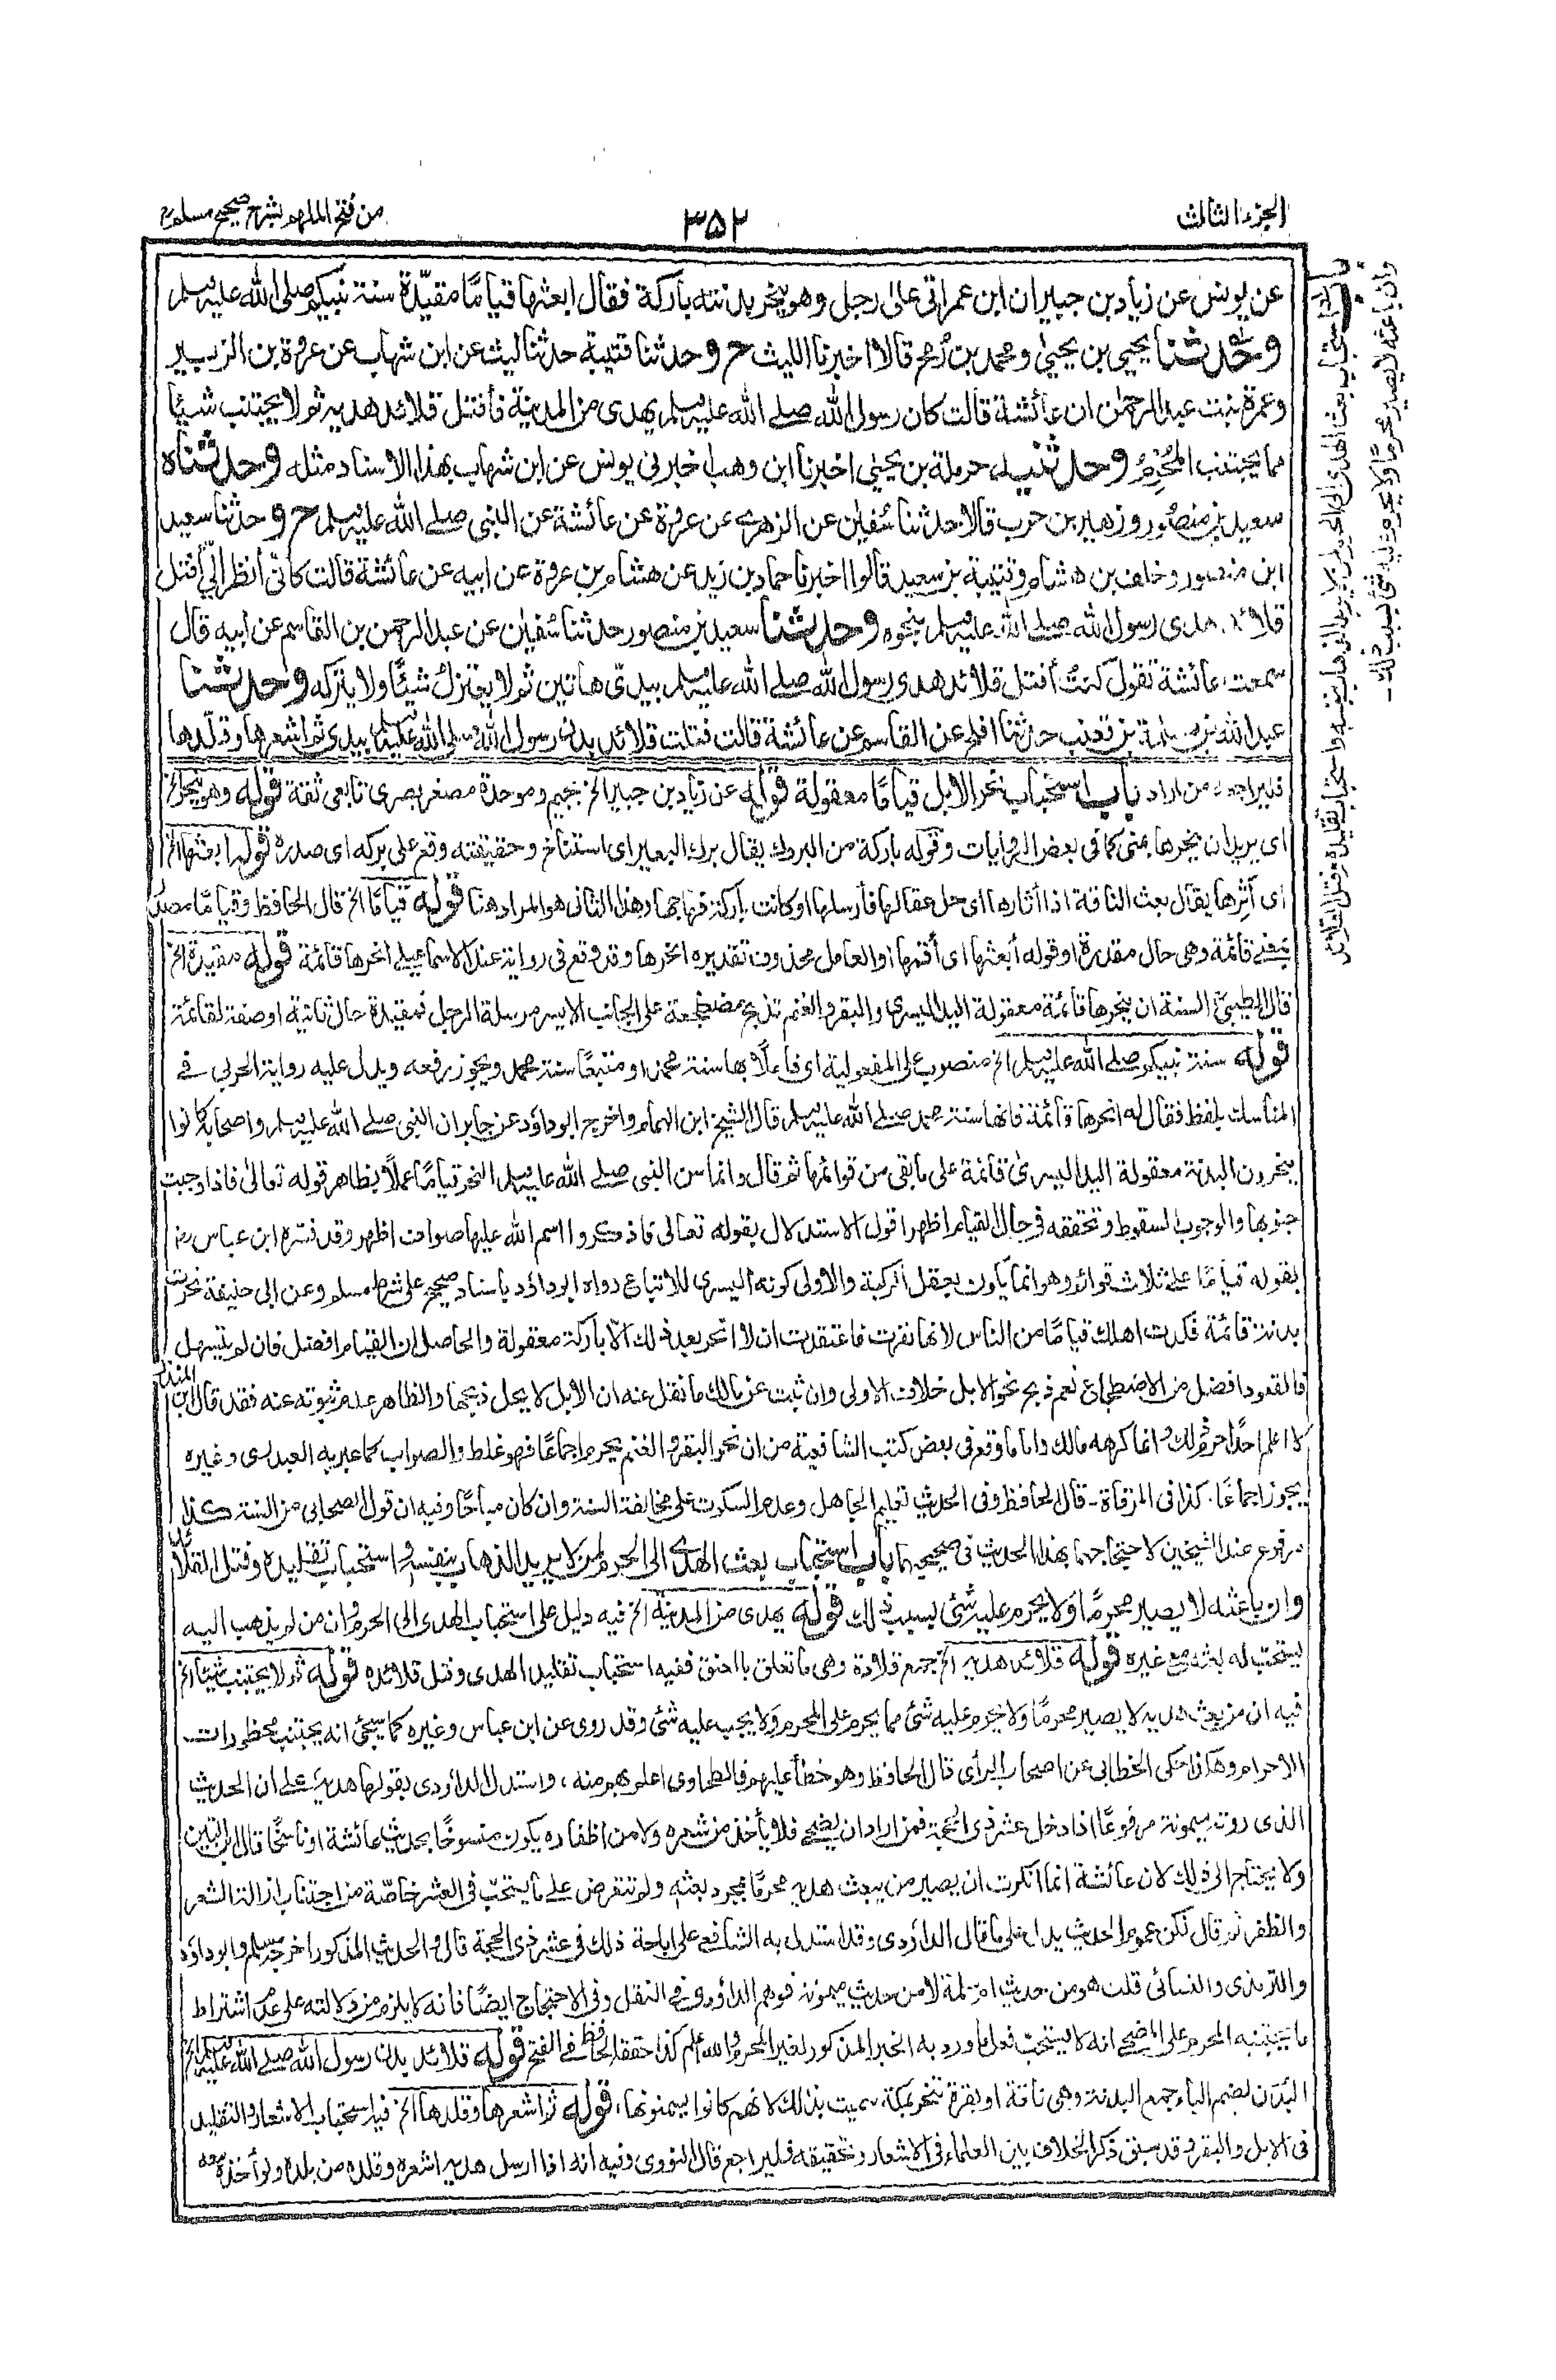 الجزء الثالث
۳۵۲
من فتح الملهم بشرح صحيح مسلم
عن يونس عن زياد بن جبير ان ابن عمر اتى على رجل وهو ينحر بدنته باركة فقال ابعثها قياما مقيّدة سنة نبيكم صلى الله عليه وسلم
وحدثنا يحيى بن يحيى ومحمد بن رمح قالا اخبرنا الليث ح وحدثنا قتيبة حدثنا ليث عن ابن شهاب عن عروة بن الزبير
وعمرة بنت عبد الرحمٰن ان عائشة قالت كان رسول الله صلے الله عليه وسلم يهدى من المدينة فأفتل قلائد هديه ثم لا يجتنب شيئًا
مما يجتنب المُحرِمُ وحدثنيه حرملة بن يحيٰى اخبرنا ابن وهب اخبرني يونس عن ابن شهاب بهذا الاسناد مثله وحدثناه
سعيد بن منصور وزهير بن حرب قالا حدثنا سُفيٰن عن الزهرے عن عروة عن عائشة عن النبى صلے الله عليه وسلم ح وحدثنا سعيد
ابن منصور وخلف بن هشام وقتيبة بن سعيد قالوا اخبرنا حماد بن زيد عن هشام بن عروة عن ابيه عن عائشة قالت كأنّى أنظر الىّ أفتل
قلائد هدى رسول الله صلے الله عليه وسلم بنحوه وحدثنا سعيد بن منصور حدثنا سُفيٰن عن عبد الرحمن بن القاسم عن ابيه قال
سمعت عائشة تقول كنتُ أفتل قلائد هدى رسول الله صلے الله عليه وسلم بيدىّ هاتين ثم لا يعتزل شيئًا ولا يتركه وحدثنا
عبد الله بن مسلمة بن قعنب حدثنا افلح عن القاسم عن عائشة قالت فتلت قلائد بدن رسول الله صلى الله عليه وسلم بيدى ثم اشعرها وقلّدها
فليراجعه من اراد باب استحباب نحر الابل قيامًا معقولة قوله عن زياد بن جبير الخ بجيم وموحدة مصغر بصرى تابعى ثقة قوله وهو ينحر الخ
اى يريد ان ينحرها بمنى كما فى بعض الروايات وقوله باركة من البروك يقال برك البعير اى استناخ وحقيقته وقع على بركه اى صدره قوله ابعثها الخ
اى أثِرها يقال بعث الناقة اذا أثارها اى حل عقالها فأرسلها او كانت باركة فهاجها وهذا الثانى هو المراد هنا قوله قيامًا الخ قال الحافظ وقيامًا مصدر
بمعنى قائمة وهى حال مقدرة او قوله أبعثها اى أقمها او العامل محذوف تقديره انحرها وقد وقع فى رواية عند الاسماعيلى انحرها قائمة قوله مقيدة الخ
قال الطيبى السنة ان ينحرها قائمة معقولة اليد اليسرى والبقر والغنم تذبح مضطجعة على الجانب الايسر مرسلة الرجل فمقيدة حال ثانية او صفة لقائمة
قوله سنة نبيكم صلے الله عليه وسلم الخ منصوب على المفعولية اى فاعلًا بها سنة محمد او متبعًا سنة محمد ويجوز رفعه ويدل عليه رواية الحربى فے
المناسك بلفظ فقال له انحرها قائمة فانها سنة محمد صلے الله عليه وسلم قال الشيخ ابن الهمام واخرج ابو داؤد عن جابر ان النبى صلے الله عليه وسلم واصحابه كانوا
ينحرون البدنة معقولة اليد اليسرىٰ قائمة على ما بقى من قوائمها ثم قال وانما سن النبى صلے الله عليه وسلم النحر قيامًا عملًا بظاهر قوله تعالىٰ فاذا وجبت
جنوبها والوجوب السقوط وتحققه فى حال القيام اظهر اقول الاستدلال بقوله تعالى فاذكروا اسم الله عليها صواف اظهر وقد فسّره ابن عباس رضـ
بقوله قيامًا علے ثلاث قوائم وهو انما يكون بعقل الركبة والاولى كونه اليسرى للاتباع رواه ابو داؤد باسناد صحيح على شرط مسلم وعن ابى حنيفة نحرت
بدنة قائمة فكدت اهلك قيامًا من الناس لانها نفرت فاعتقدت ان لا انحر بعد ذلك الّا باركة معقولة والحاصل ان القيام افضل فان لم يتسهل
فالقعود افضل من الاضطجاع نعم ذبح نحو الابل خلاف الاولى وان ثبت عن مالك ما نقل عنه ان الابل لا يحل ذبحها والظاهر عدم ثبوته عنه فقد قال ابن المنذر
لا اعلم احدًا حرم ذلك وانما كرهه مالك واما ما وقع فى بعض كتب الشافعية من ان نحر البقر والغنم يحرم اجماعًا فهو غلط والصواب كما عبر به العبدرى وغيره
يجوز اجماعًا. كذا فى المرقاة ـ قال الحافظ وفى الحديث تعليم الجاهل وعدم السكوت على مخالفة السنة وان كان مباحًا وفيه ان قول الصحابى من السنة كذا
مرفوع عند الشيخين لاحتجاجهما بهذا الحديث فى صحيحيهما باب استحباب بعث الهدى الى الحرم لمن لا يريد الذهاب بنفسه واستحباب تقليده وفتل القلائد
وان باعثه لا يصير محرمًا ولا يحرم عليه شئ بسبب ذلك قوله يهدى من المدينة الخ فيه دليل على استحباب الهدى الى الحرم وان من لم يذهب اليه
يستحبّ له بعثه مع غيره قوله قلائد هديه الخ جمع قلادة وهى ما تعلق بالعنق ففيه استحباب تقليد الهدى وفتل قلائده قوله ثم لا يجتنب شيئًا الخ
فيه ان من بعث هديه لا يصير محرمًا ولا يحرم عليه شئ مما يحرم على المحرم ولا يجب عليه شئ وقد روى عن ابن عباس وغيره كما سيجئ انه يجتنب محظورات
الاحرام وهكذا حكى الخطابى عن اصحاب الرأى قال الحافظ وهو خطأ عليهم فالطحاوى اعلم بهم منه، واستدل الداؤدى بقولها هديه علے ان الحديث
الذى روت ميمونة مرفوعًا اذا دخل عشر ذى الحجة فمن اراد ان يضحى فلا يأخذ من شعره ولا من اظفاره يكون منسوخًا بحديث عائشة او ناسخًا قال ابن التين
ولا يحتاج الى ذلك لان عائشة انما انكرت ان يصير من يبعث هديه محرمًا بمجرد بعثه ولم تتعرض على ما يستحبّ فى العشر خاصّة من اجتناب ازالة الشعر
والظفر ثم قال لكن عموم الحديث يدل على ما قال الداؤدى وقد استدل به الشافعى على اباحة ذلك فى عشر ذى الحجة قال والحديث المذكور اخرجه مسلم وابو داؤد
والترمذى والنسائى قلت هو من حديث ام سلمة لا من حديث ميمونة فوهم الداؤدى فى النقل وفى الاحتجاج ايضًا فانه لا يلزم من دلالته على عدم اشتراط
ما يجتنبه المحرم على المضحى انه لا يستحبّ فعل ما ورد به الخبر المذكور لغير المحرم والله اعلم كذا حققه الحافظ فى الفتح قوله قلائد بدن رسول الله صلے الله عليه وسلم الخ
البُدن بضم الباء جمع البدنة وهى ناقة او بقرة تنحر بمكة، سميت بذلك لانهم كانوا يسمنونها، قوله ثم اشعرها وقلدها الخ فيه استحباب الاشعار والتقليد
فى الابل والبقر وقد سبق ذكر الخلاف بين العلماء فى الاشعار وتحقيقه فليراجع قال النووى وفيه انه اذا ارسل هديه اشعره وقلده من بلده ولو أخذه معه
باب استحباب بعث الهدى الى الحرم لمن لا يريد الذهاب بنفسه واستحباب تقليده وفتل القلائد
وان باعثه لا يصير محرمًا ولا يحرم عليه شئ بسبب ذلك ـ